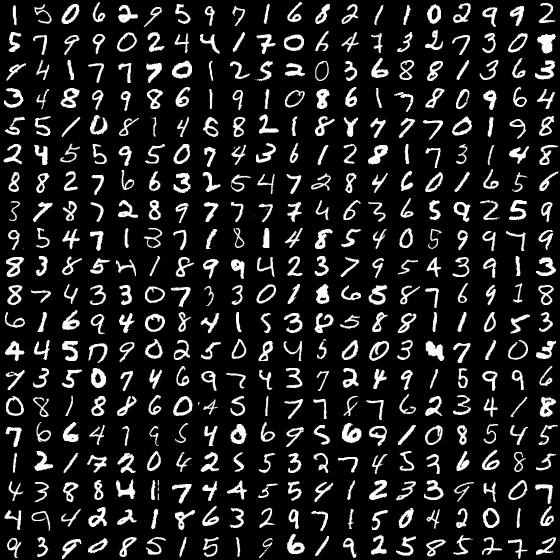 1 5 0 6 2 9 5 9 7 1 6 8 2 1 1 0 2 9 9 2
5 7 9 9 0 2 4 4 1 7 0 6 4 7 3 2 7 3 0 8
9 4 1 7 7 7 0 1 2 5 2 0 3 6 8 8 1 3 6 3
3 4 8 9 9 8 6 1 9 1 0 8 6 1 7 8 0 9 6 4
5 5 1 0 8 1 4 6 8 2 1 8 8 7 7 7 0 1 9 8
2 4 5 5 9 5 0 7 4 3 6 1 2 8 1 7 3 1 4 8
8 8 2 7 6 6 3 2 5 4 7 2 8 4 6 0 1 6 5 6
3 7 8 7 2 8 9 7 7 7 7 4 6 3 6 5 9 2 5 9
9 5 4 7 1 3 7 1 8 1 4 8 5 4 0 5 9 9 7 9
8 3 8 5 4 1 8 9 9 4 2 3 7 9 5 4 3 9 1 3
8 7 4 3 3 0 7 3 3 0 1 8 6 5 8 7 6 9 1 8
6 1 6 9 4 0 8 4 1 5 3 8 5 8 8 1 1 0 5 3
4 4 5 7 9 0 2 5 0 8 4 5 0 0 3 4 7 1 0 3
9 3 5 0 7 4 6 9 7 4 3 7 2 4 9 1 5 9 9 6
0 8 1 8 8 6 0 4 5 1 7 7 8 7 6 2 3 4 1 8
7 6 6 4 7 9 5 4 0 6 9 5 6 9 1 0 8 5 4 5
1 2 1 7 2 0 4 2 5 5 3 2 7 4 5 3 6 6 8 5
4 3 8 8 4 1 7 4 4 5 5 9 1 2 3 3 9 4 0 7
4 9 4 2 2 1 8 6 3 2 9 7 1 5 0 4 2 0 1 6
9 3 9 0 8 5 1 5 1 9 6 1 9 2 5 8 5 2 7 3